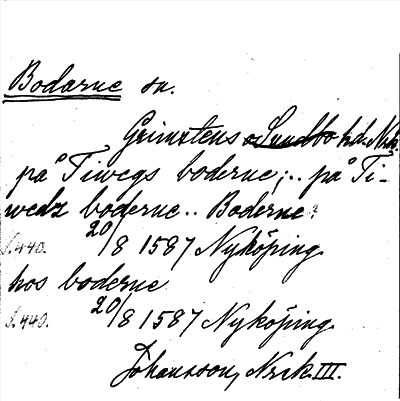 Bodarne sn.
Grimstens o. Sundbo hd. Nrk.
på Tiwegs boderne; .. på Ti-
wedz boderne .. Boderne:
S. 440. 20/8 1587 Nyköping
hos boderne
S. 440. 20/8 1587 Nyköping.
Johansson, Nrik. III.